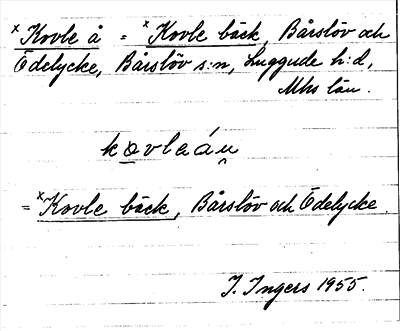 x Kovle å = x Kovle bäck, Bårslöv och
Ödelycke, Bårslöv s:n, Luggude h:d,
Mhs län.
kovleáu̯
= x Kovle bäck, Bårslöv och Ödelycke.
I. Ingers 1955.